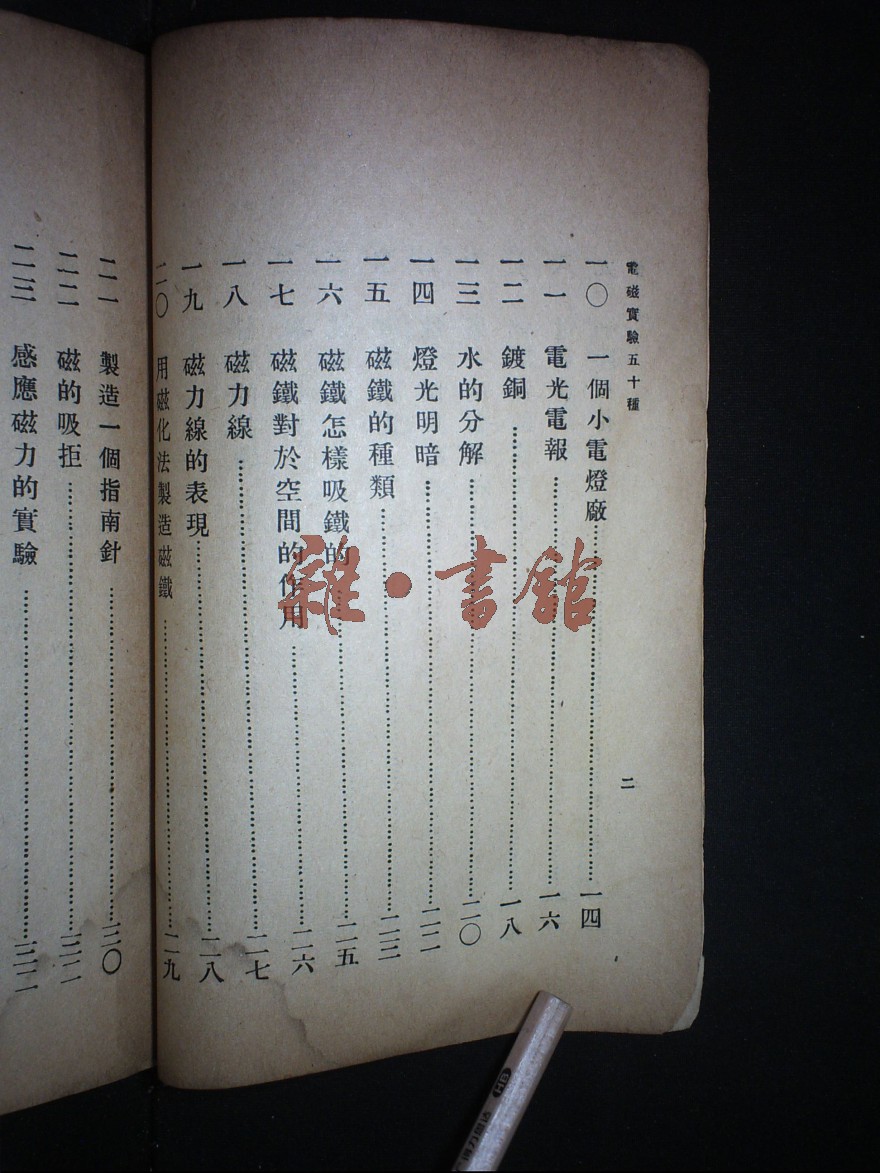 電磁實驗五十種
二
一〇 一個小電燈廠……一四
一一 電光電報……一六
一二 鍍銅……一八
一三 水的分解……二〇
一四 燈光明暗……二二
一五 磁鐵的種類……二三
一六 磁鐵怎樣吸鐵的……二五
一七 磁鐵對於空間的作用……二六
一八 磁力線……二七
一九 磁力線的表現……二八
二〇 用磁化法製造磁鐵……二九
二一 製造一個指南針……三〇
二二 磁的吸拒……三二
二三 感應磁力的實驗……三二
雜·書館
HB